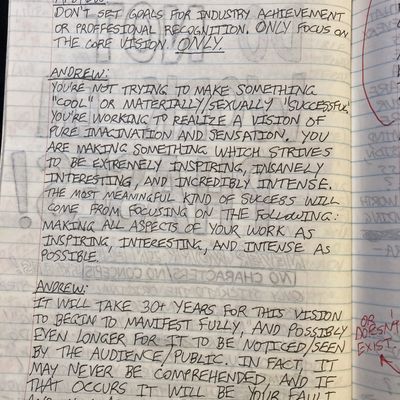 DON'T SET GOALS FOR INDUSTRY ACHIEVEMENT
OR PROFFESIONAL RECOGNITION. ONLY FOCUS ON
THE CORE VISION ONLY.
ANDREW:
YOU'RE NOT TRYING TO MAKE SOMETHING
"COOL" OR MATERIALLY/SEXUALLY "SUCCESSFUL"
YOU'RE WORKING TO REALIZE A VISION OF
PURE IMAGINATION AND SENSATION. YOU
ARE MAKING SOMETHING WHICH STRIVES
TO BE EXTREMELY INSPIRING, INSANELY
INTERESTING, AND INCREDIBLY INTENSE.
THE MOST MEANINGFUL KIND OF SUCCESS WILL
COME FROM FOCUSING ON THE FOLLOWING:
MAKING ALL ASPECTS OF YOUR WORK AS
INSPIRING, INTERESTING, AND INTENSE AS
POSSIBLE.
ANDREW:
IT WILL TAKE 30+ YEARS FOR THIS VISION
TO BEGIN TO MANIFEST FULLY, AND POSSIBLY
EVEN LONGER FOR IT TO BE NOTICED/SEEN
BY THE AUDIENCE/PUBLIC. IN FACT, IT
MAY NEVER BE COMPREHENDED, AND IF
THAT OCCURS IT WILL BE YOUR FAULT
DOESN'T
EXIST.